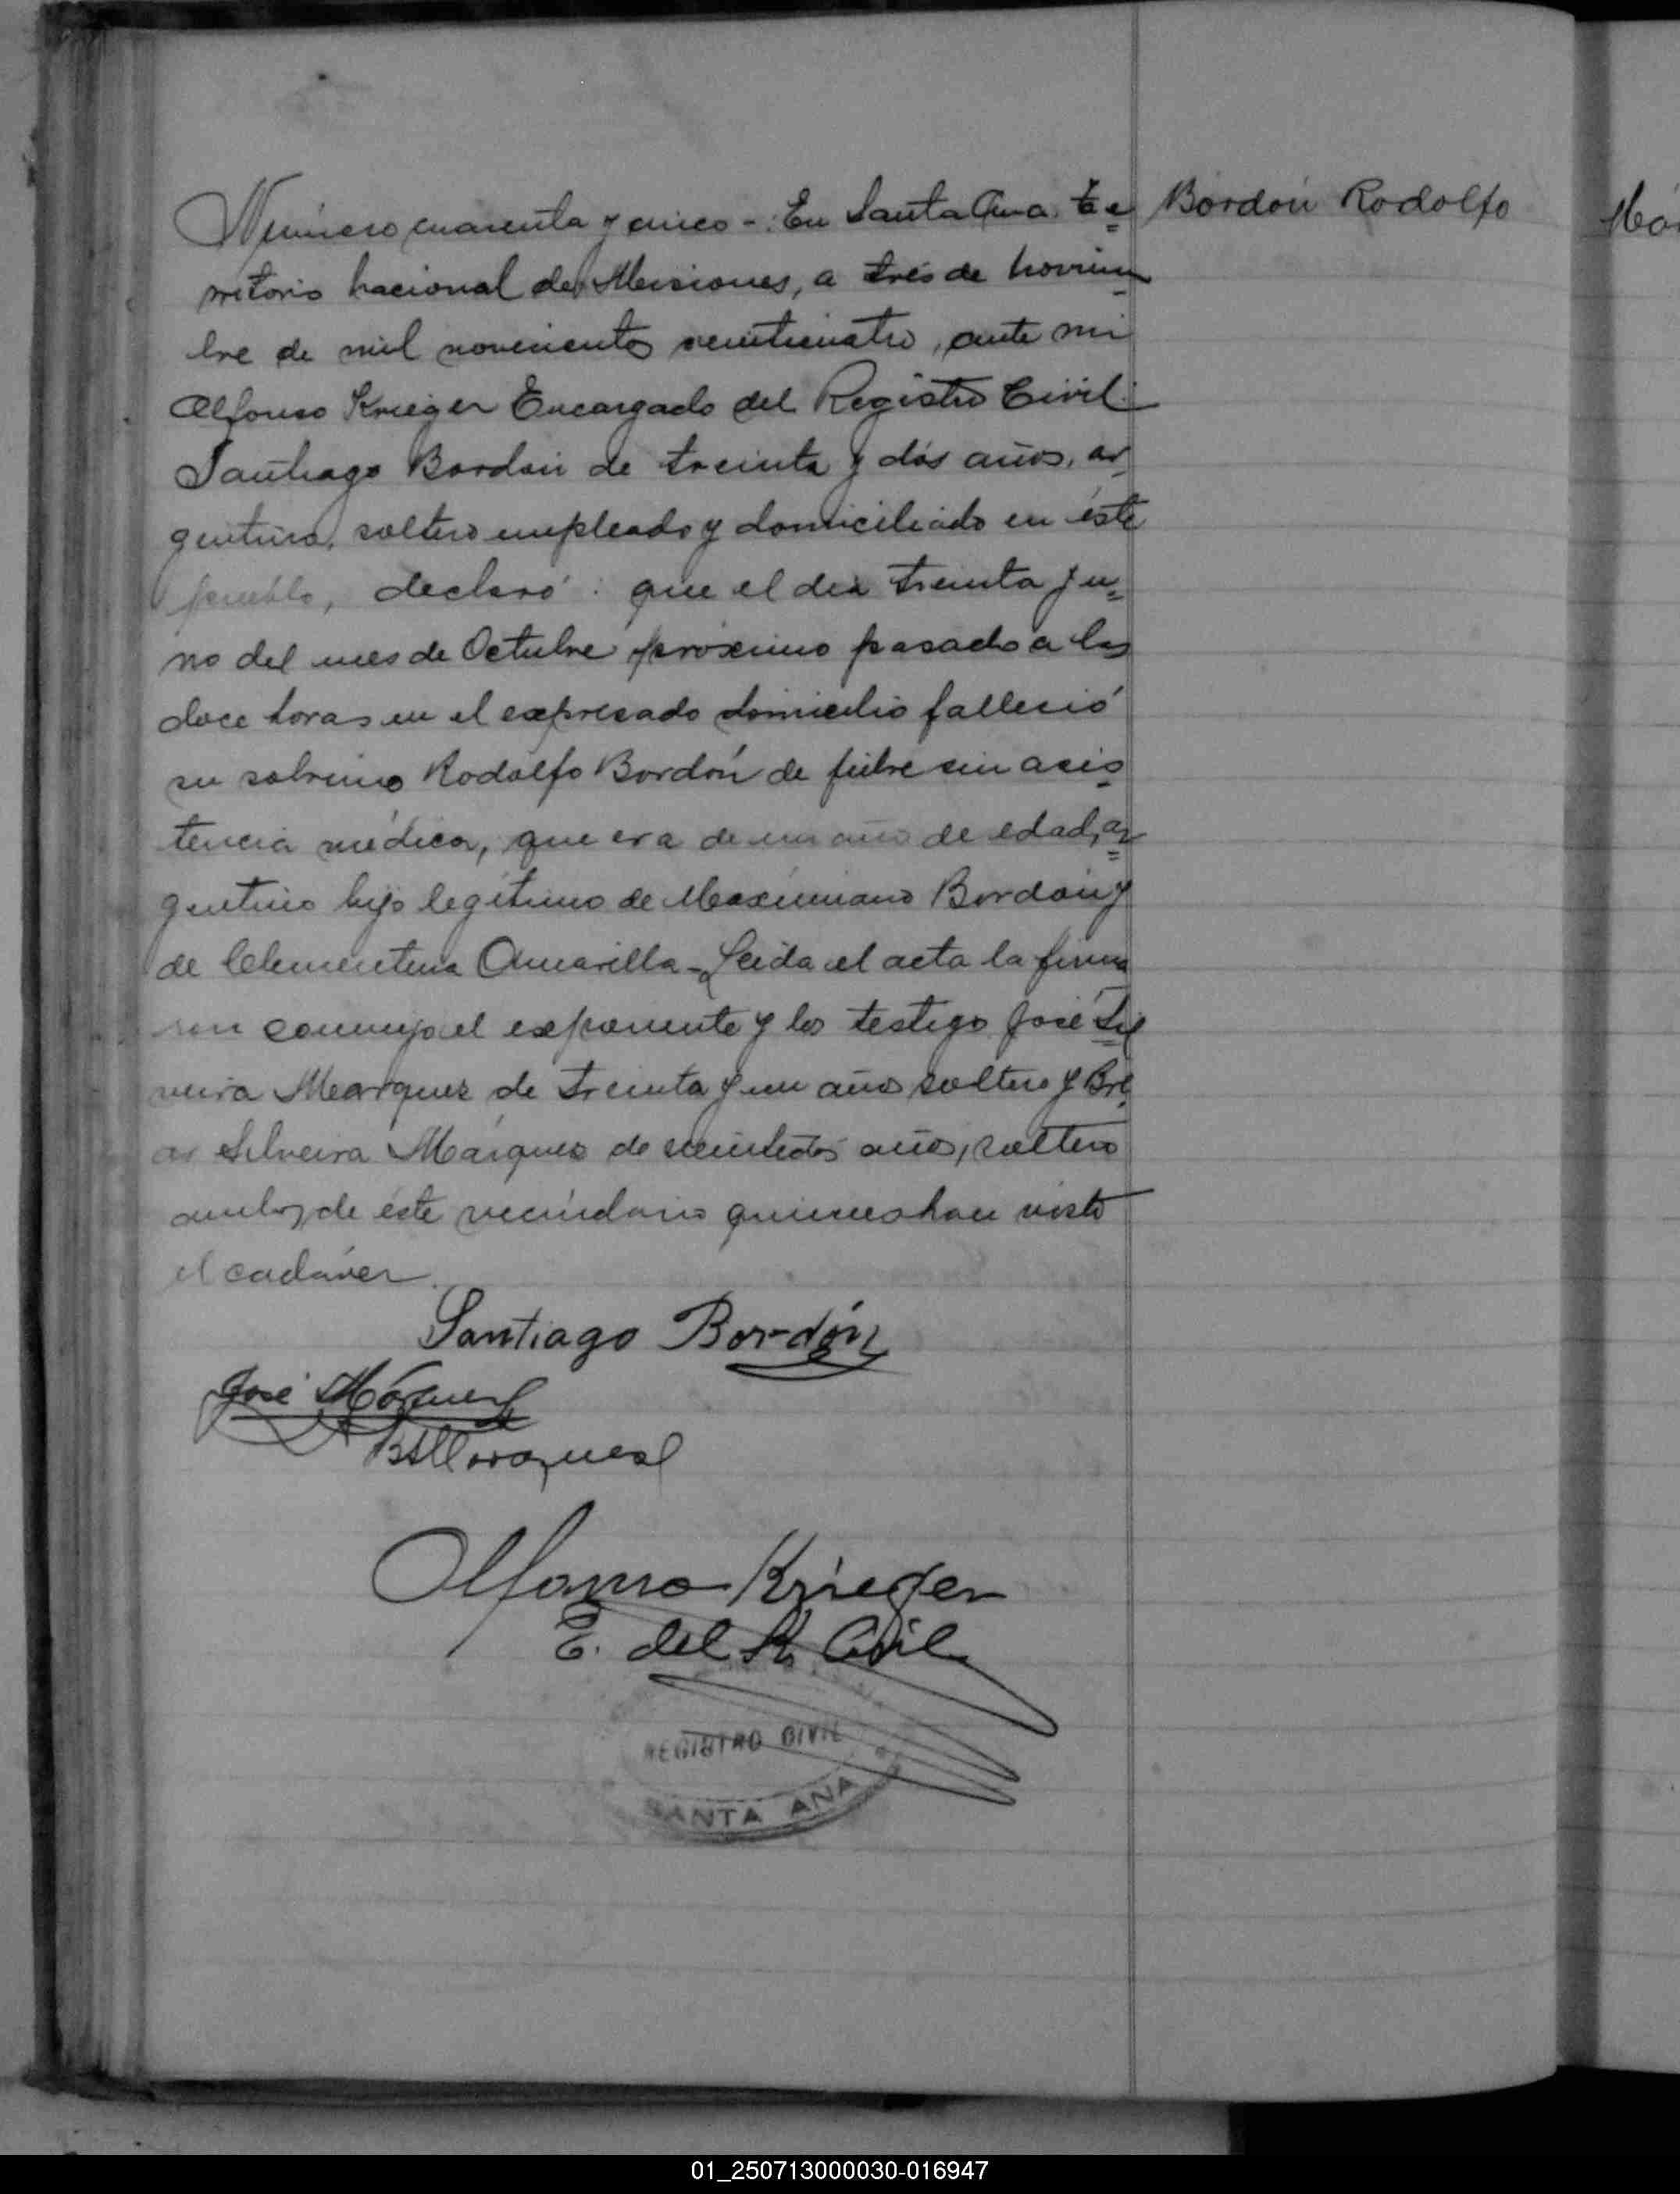 Número cuarenta y cinco -: En Santa Ana, te=
Bordón Rodolfo
rritorio nacional de Misiones, a tres de noviem-
bre de mil novecientos veinticuatro, ante mi
Alfonso Krieger Encargado del Registro Civil
Santiago Bordón de treinta y dós años, ar-
gentino, soltero empleado y domiciliado en éste
pueblo, declaró: que el dia treinta y u=
no del mes de Octubre próximo pasado a las
doce horas en el expresado domicilio falleció
su sobrino Rodolfo Bordón de fiebre sin asis-
tencia médica, que era de un año de edad, ar=
gentino hijo legítimo de Maximiano Bordón y
de Clementina Amarilla - Leida el acta la firma
ron conmigo el exponente y los testigo José Sil=
veira Marquez de treinta y un años soltero y
Silveira Márques de veintidós años, soltero
ambos de éste vecindario quienes han visto
el cadáver.
Santiago Bordón
José Márquez
BSMarquez
Alfonso Krieger
E. del R. Civil
REGISTRO CIVIL
SANTA ANA
01_250713000030-016947